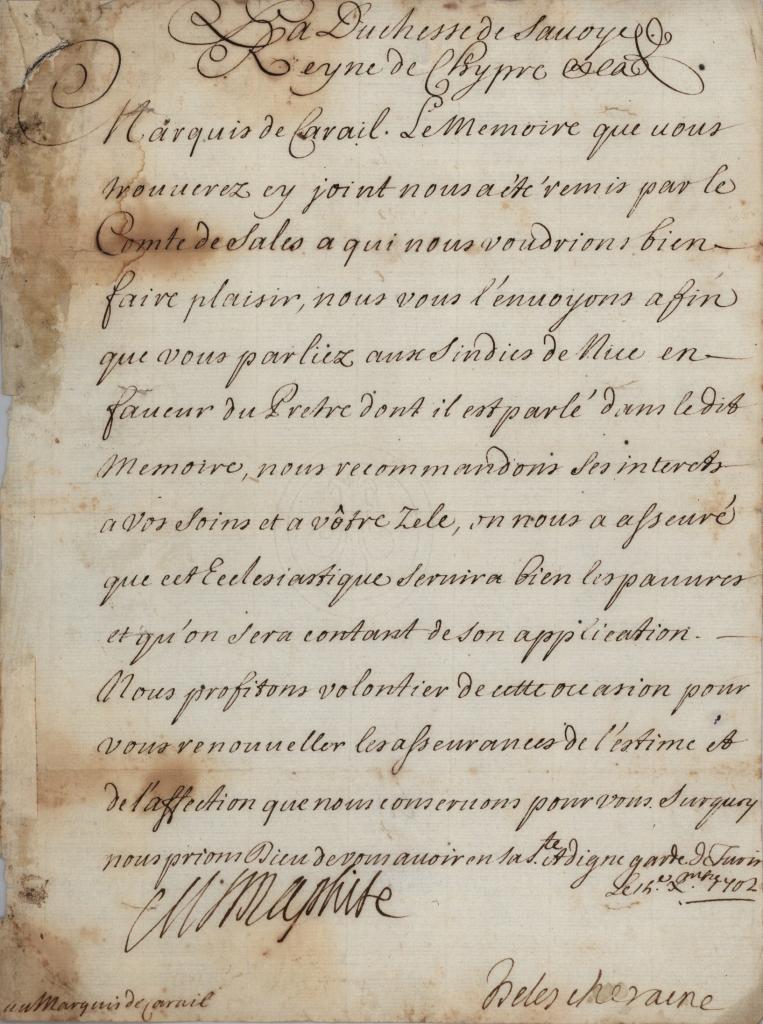 La Duchesse de Sauoye
Reyne de Chypre &ca
Marquis de Carail. Le Memoire que uous
trouuerez cy joint nous a été remis par le
Comte de Sales a qui nous voudrions bien
faire plaisir, nous vous l'enuoyons afin
que vous parliez aux Sindics de Nice en
faueur du Pretre dont il est parlé dans le dit
Memoire, nous recommandons ses interets
a vos soins et a vôtre Zele, on nous a asseuré
que cet Ecclesiastique seruira bien les pauures
et qu'on sera contant de son application.
Nous profitons volontier de cette occasion pour
vous renouueller les asseurances de l'estime et
de l'affection que nous conseruons pour vous. Surquoy
nous prions Dieu de vous auoir en sa Ste. et digne garde. De Turin
Le 1702
au Marquis de Carail